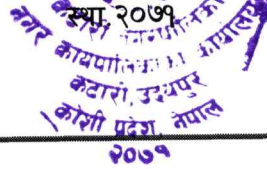 स्था. २०७१
नगर कार्यपालिकाको कार्यालय
कटारी, उदयपुर
कोशी प्रदेश, नेपाल
२०७१